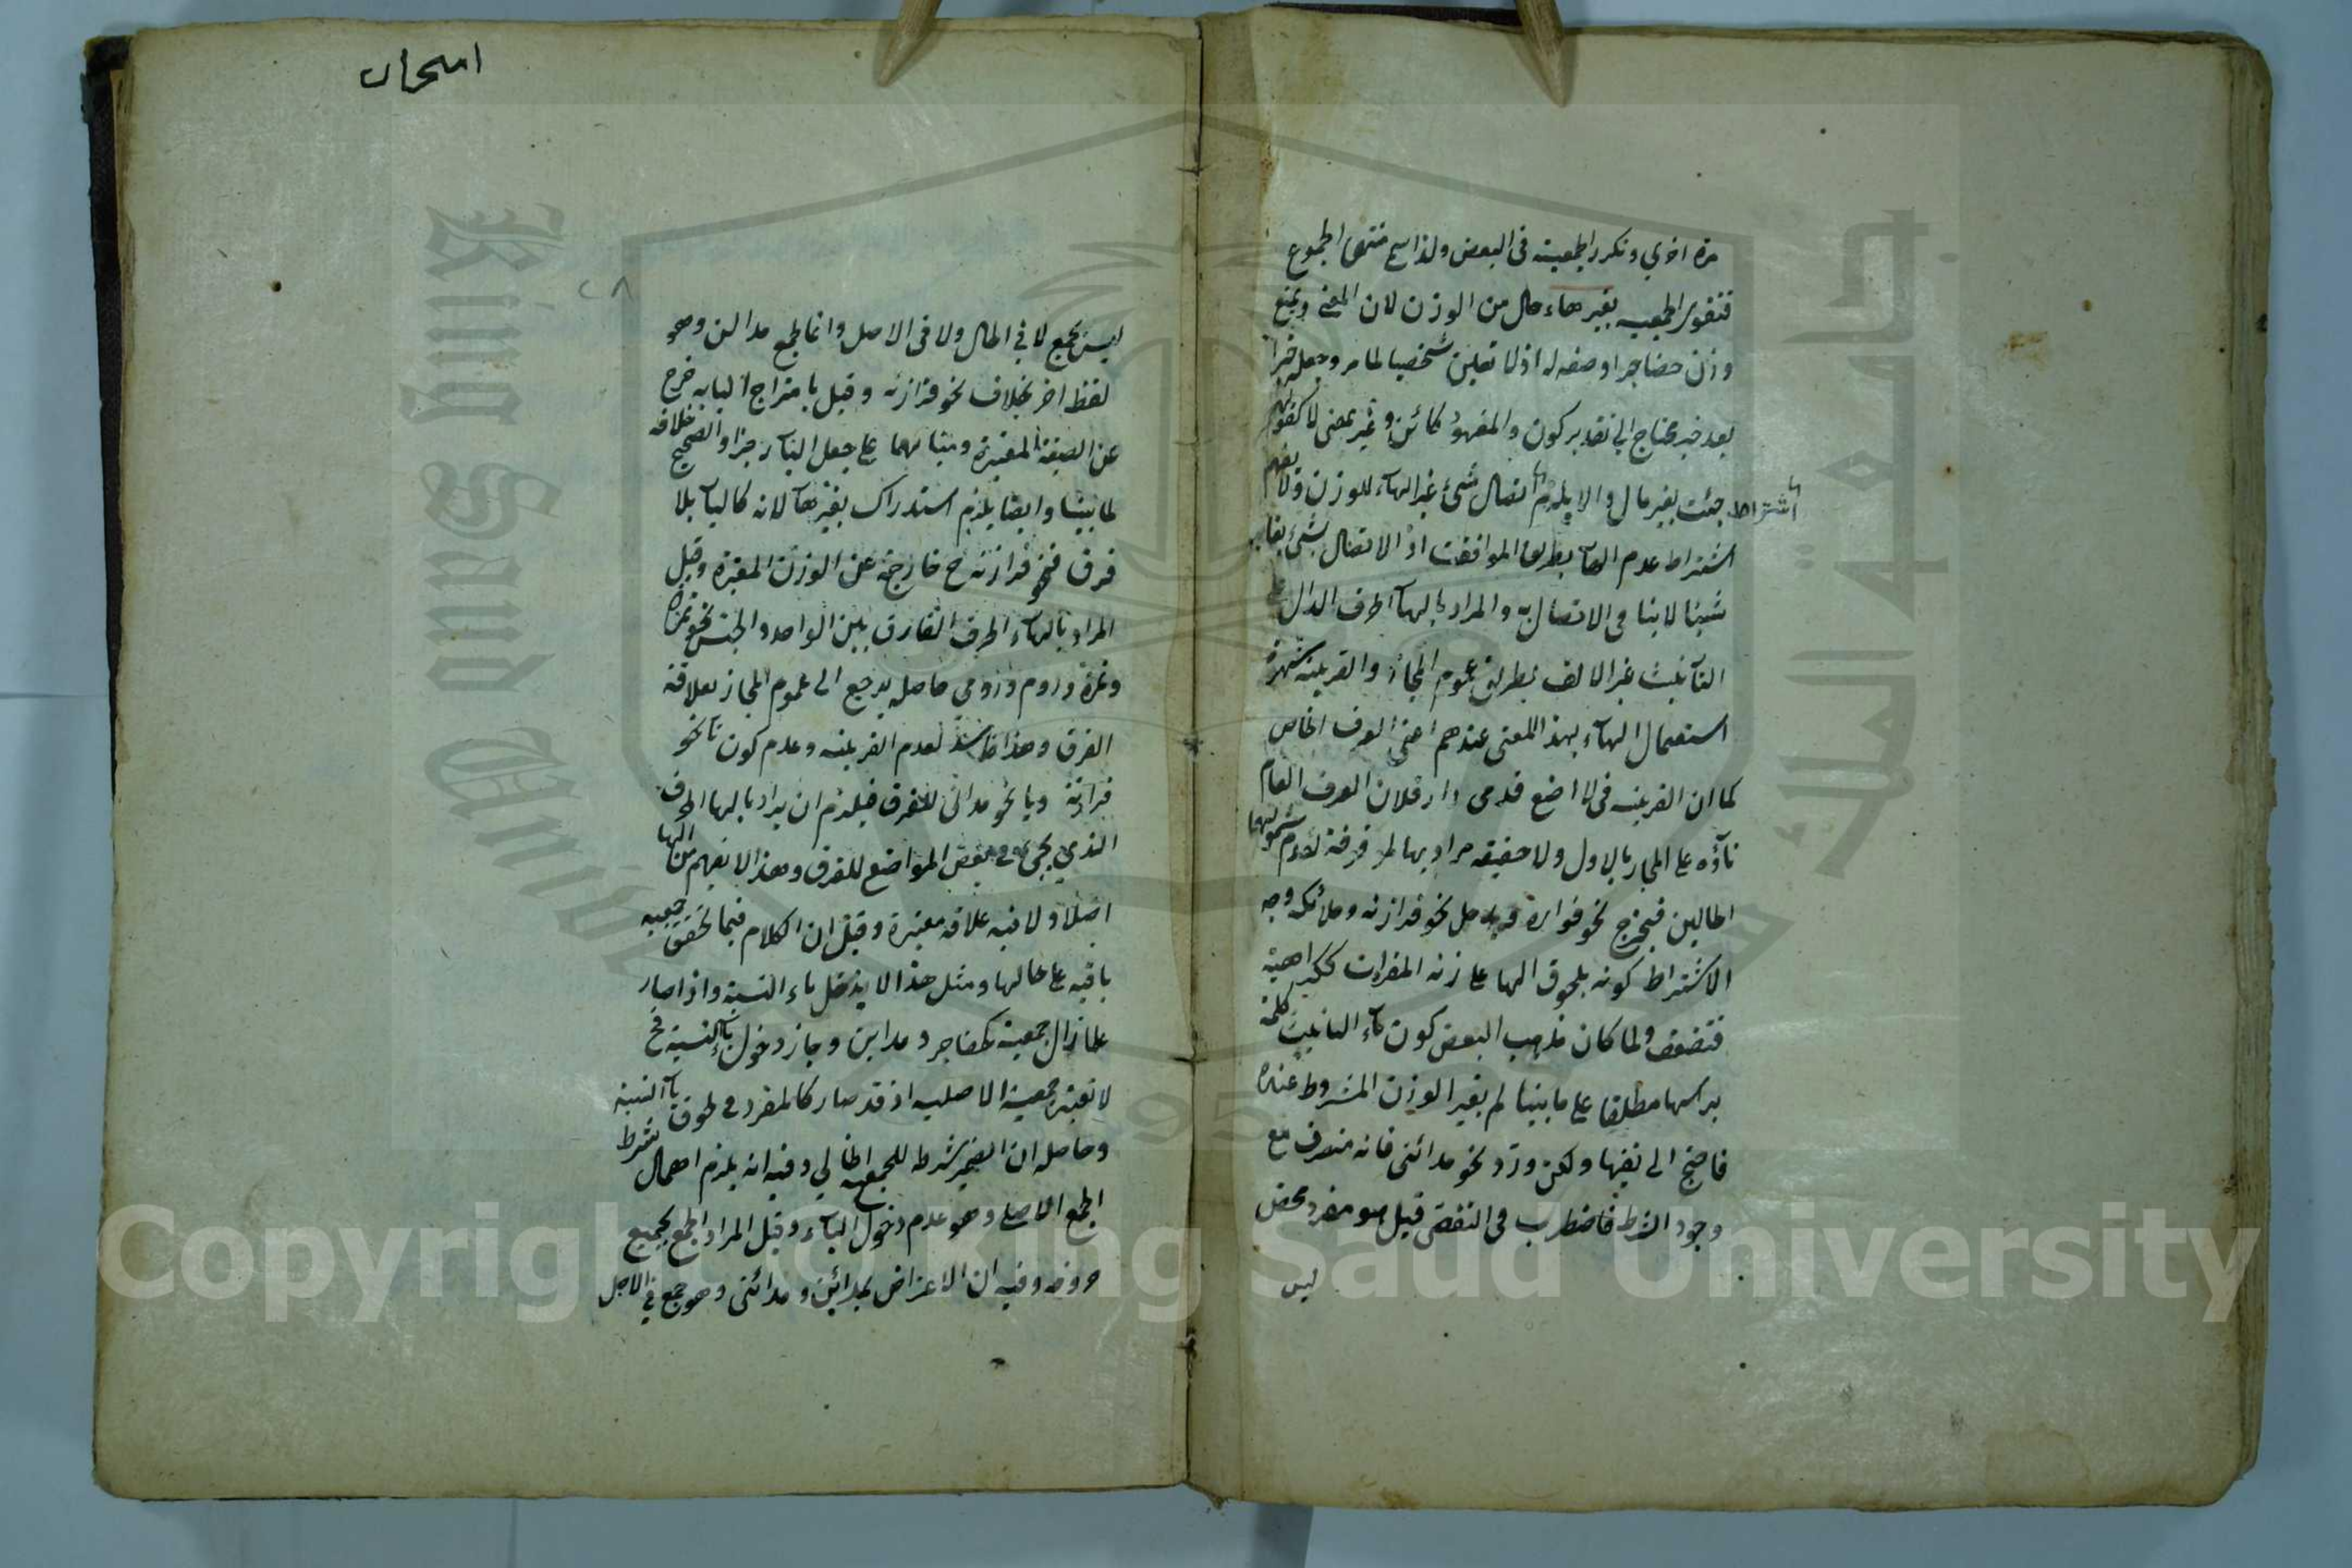 مرة اخري وتكرر الجمعية في البعض ولذا سمي منتهى الجموع
فتقوى الجمعية بغير هاء حال من الوزن لان المعنى ويمنع
وزن حضاجر او صفه له اذ لا تعين شخصيا لما مر وجعله خبرا
بعد خبر محتاج الى تقدير كون والمفهوم كائن وغير بمعنى لا كقولهم
جئت بغير مال والا يلزم اتصال شئ غير الهاء للوزن ولا يفهم
اشتراط
اشتراط عدم الهاء بطريق الموافقت اذ الاتصال بشئ يغاير
شيئا لا ينافي الاتصال به والمراد بالهاء الحرف الدال على
التأنيث غير الالف بطريق عموم المجاز والقرينة شهرة
استعمال الهاء بهذا المعنى عندهم اعني العرف الخاص
كما ان القرينه في لا اضع قدمي دار فلان العرف العام
تاؤه على المجاز بالاول ولا حقيقه مراد بها لمر فرقة لعدم شمولهما
الحالين فيخرج نحو فواره ويدخل نحو فرازنه وملائكه وجه
الاشتراط كونه بلحوق الهاء على زنه المفردات ككراهية
فتضعف ولما كان مذهب البعض كون تاء التانيث كلمة
براسها مطلقا على ما بينا لم يغير الوزن المشروط عنده
فاحتج الى نفيها ولكن ورد نحو مدائنى فانه منصرف مع
وجود الشرط فاضطرب في التفصى قيل هو مفرد محض
ليس
امتحان
ليس بجمع لا في الحال ولا في الاصل وانما الجمع مدائن وهو
لفظ اخر بخلاف نحو فرازنه وقيل بامتزاج الياء به خرج
عن الصيغة المعتبرة ومبناهما على جعل الياء جزا والصحيح خلافه
لما بينا وايضا يلزم استدراك بغير هاء لانه كالياء بلا
فرق فنحو فرازنه ح خارجة عن الوزن المعتبرة وقيل
المراد بالهاء الحرف الفارق بين الواحد والجنس نحو تمرة
وتمرة وروم ورومي حاصله يرجع الى عموم المجاز بعلاقة
الفرق وهذا فاسد لعدم القرينه وعدم كون تا نحو
فرازنة ويا نحو مدائنى للفرق فيلزم ان يراد بالهاء الحرف
الذي يجئ في بعض المواضع للفرق وهذا لا يفهم من الهاء
اصلا ولا فيه علاقه معتبرة وقيل ان الكلام فيما تحقق جمعيه
باقيه على حالها ومثل هذا لا يدخل ياء النسبة واذا صار
علما زال جمعية كحضاجر ومداين وجاز دخول ياء النسبة فح
لا تعتبر جمعية الاصليه اذ قد صار كالمفرد في لحوق ياء النسبة
وحاصله ان الضمير شرط للجمع الحالي وفيه انه يلزم اهمال شرط
الجمع الاصلي وهو عدم دخول الياء وقيل المراد الجمع بجميع
حروفه وفيه ان الاعتراض بمدائن ومدائنى وهو جمع في الاصل
Copyright © King Saud University
جامعة الملك سعود
King Saud University
1957